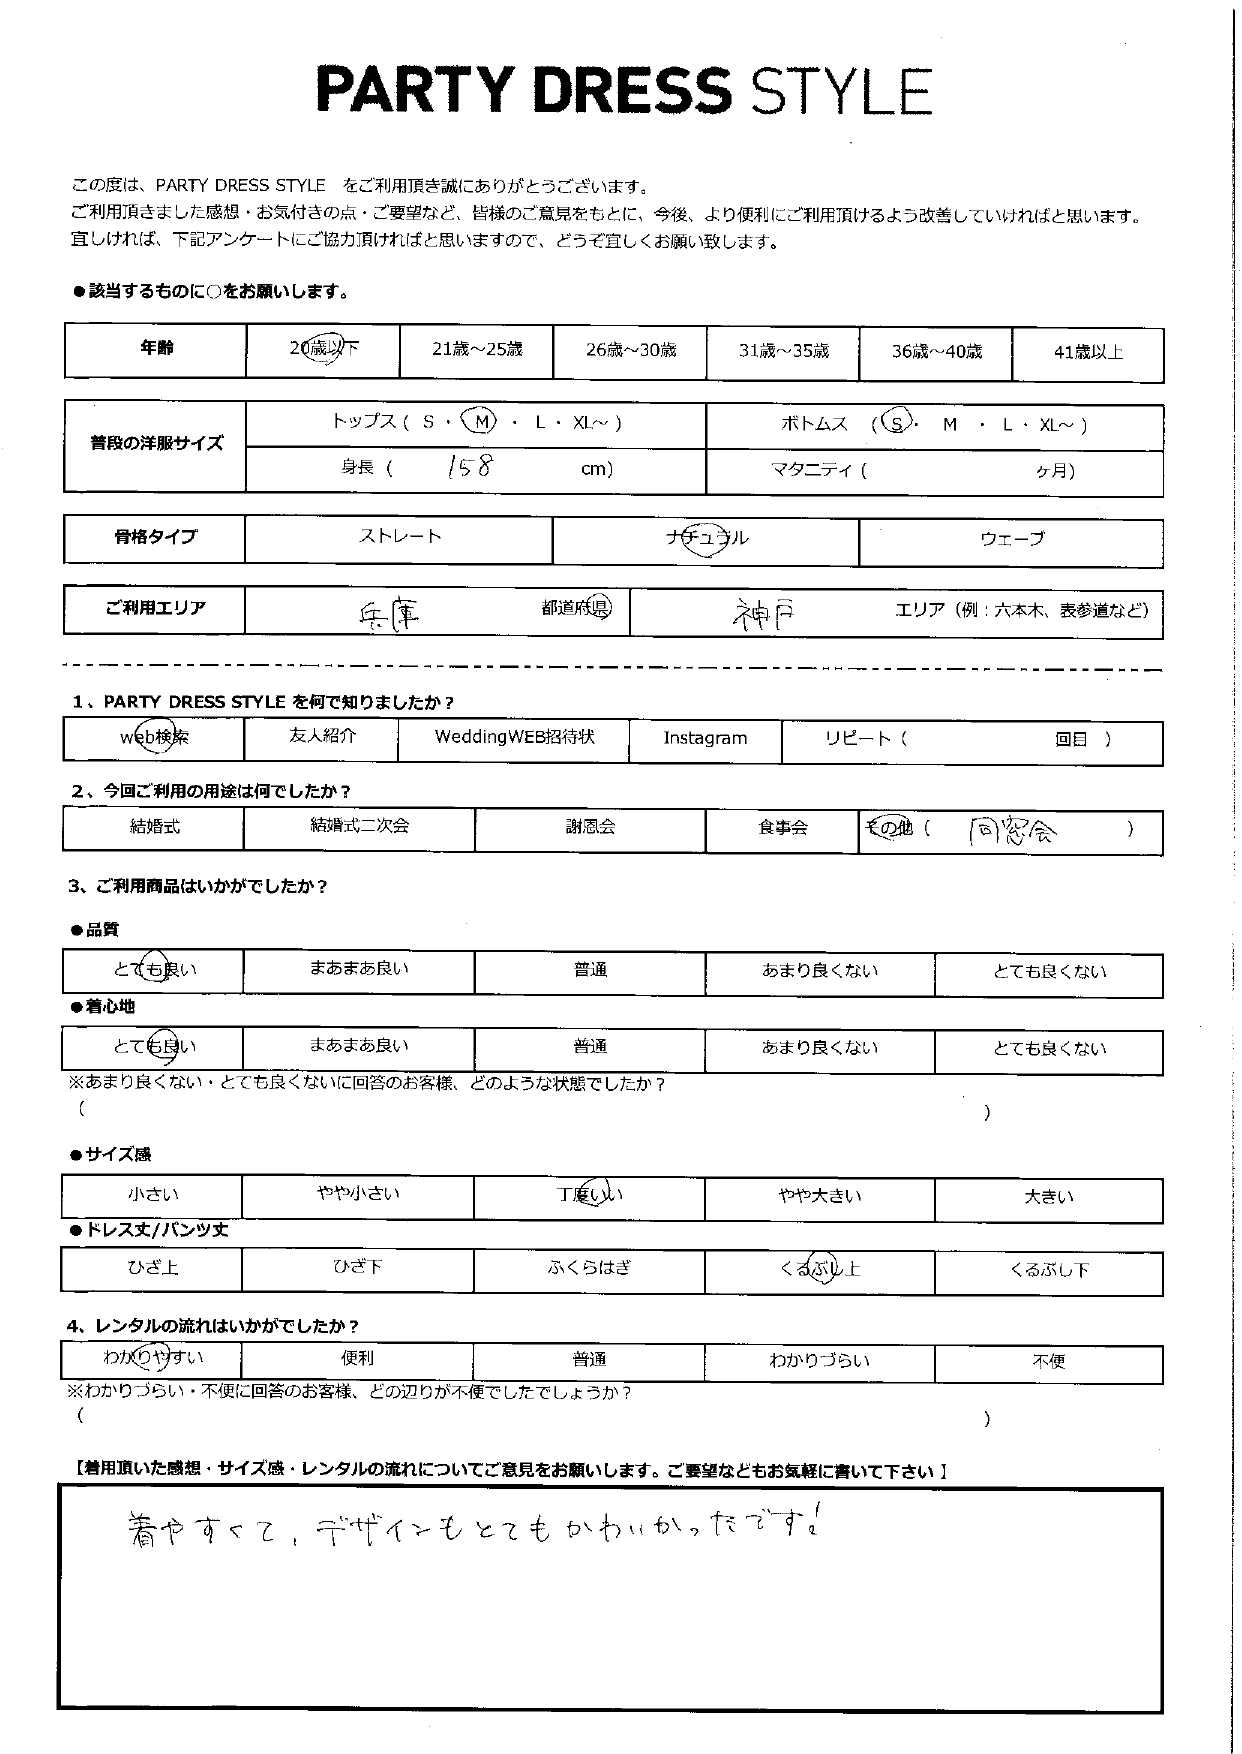 PARTY DRESS STYLE
この度は、PARTY DRESS STYLE　をご利用頂き誠にありがとうございます。
ご利用頂きました感想・お気付きの点・ご要望など、皆様のご意見をもとに、今後、より便利にご利用頂けるよう改善していければと思います。
宜しければ、下記アンケートにご協力頂ければと思いますので、どうぞ宜しくお願い致します。
●該当するものに○をお願いします。
年齢 20歳以下 21歳～25歳 26歳～30歳 31歳～35歳 36歳～40歳 41歳以上
普段の洋服サイズ トップス ( S ・ M ・ L ・ XL～ ) ボトムス ( S ・ M ・ L ・ XL～ )
身長 ( 158 cm) マタニティ ( ヶ月)
骨格タイプ ストレート ナチュラル ウェーブ
ご利用エリア 兵庫 都道府県 神戸 エリア（例：六本木、表参道など）
1、PARTY DRESS STYLE を何で知りましたか？
web検索 友人紹介 WeddingWEB招待状 Instagram リピート ( 回目 )
2、今回ご利用の用途は何でしたか？
結婚式 結婚式二次会 謝恩会 食事会 その他 ( 同窓会 )
3、ご利用商品はいかがでしたか？
●品質
とても良い まあまあ良い 普通 あまり良くない とても良くない
●着心地
とても良い まあまあ良い 普通 あまり良くない とても良くない
※あまり良くない・とても良くないに回答のお客様、どのような状態でしたか？
( )
●サイズ感
小さい やや小さい 丁度いい やや大きい 大きい
●ドレス丈/パンツ丈
ひざ上 ひざ下 ふくらはぎ くるぶし上 くるぶし下
4、レンタルの流れはいかがでしたか？
わかりやすい 便利 普通 わかりづらい 不便
※わかりづらい・不便に回答のお客様、どの辺りが不便でしたでしょうか？
( )
【着用頂いた感想・サイズ感・レンタルの流れについてご意見をお願いします。ご要望などもお気軽に書いて下さい】
着やすくて、デザインもとてもかわいかったです!